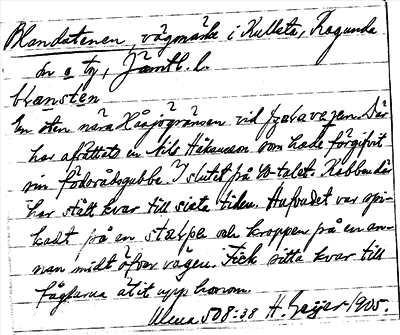 Blandstenen, vägmärke i Kullsta, Ragunda
sn o tg, Jämtl. l.
blænsten
En sten nära Håsjögränsen vid færavæjen. Där
har afrättats en Nils Håkansson som hade förgifvit
sin födorådsgubbe i slutet på 60-talet. Kabben där
har stått kvar till sista tiden. Hufvudet var spi-
kadt på en stærpe och kroppen på en an-
nan midt öfver vägen. Fick sitta kvar till
fåglarna ätit upp honom.
Ulma 508:38 H. Geijer 1905.